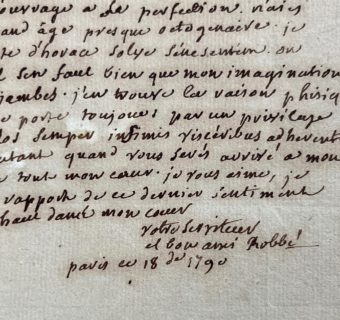 ouvrage a la perfection. mais
and âge presque octogenaire. je
te d'horace solve senescentem. on
il s'en faut bien que mon imagination
jambes. j'en trouve la raison phisiq
me porte toujours par un privilege
los semper infimis visceribus adherent
utant quand vous serés arrivé a mon
e tout mon cœur. je vous aime, je
rapport de ce dernier sentiment
haut dans mon cœur
votre serviteur
et bon ami Robbé
paris ce 18 de 1790